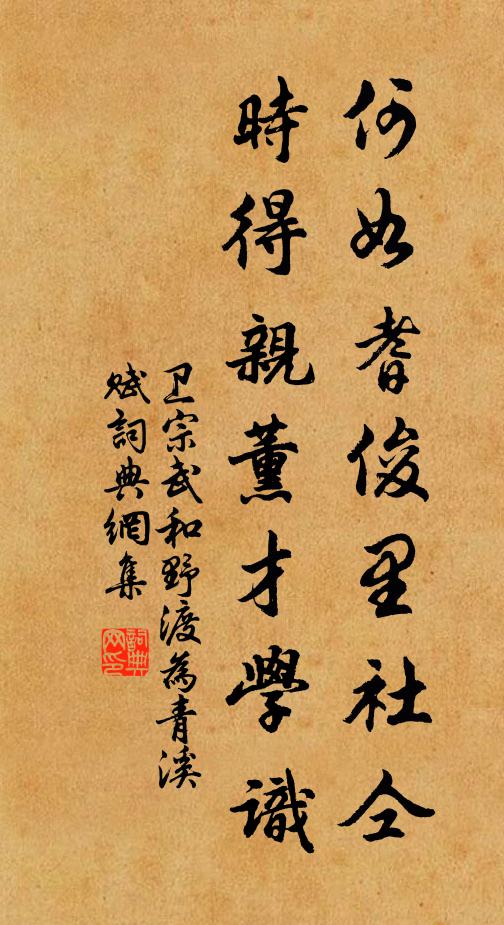 何如耆俊里社仝
時得親薰才學識
卫宗武和野渡為青溪
赋詞典網集
詞典
网印